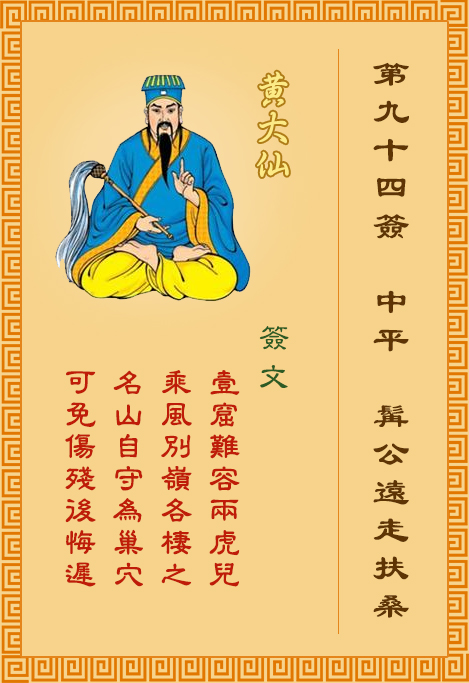 第九十四簽 中平 髯公遠走扶桑
黄大仙
簽文
壹窟難容兩虎兒
乘風別嶺各棲之
名山自守為巢穴
可免傷殘後悔遲